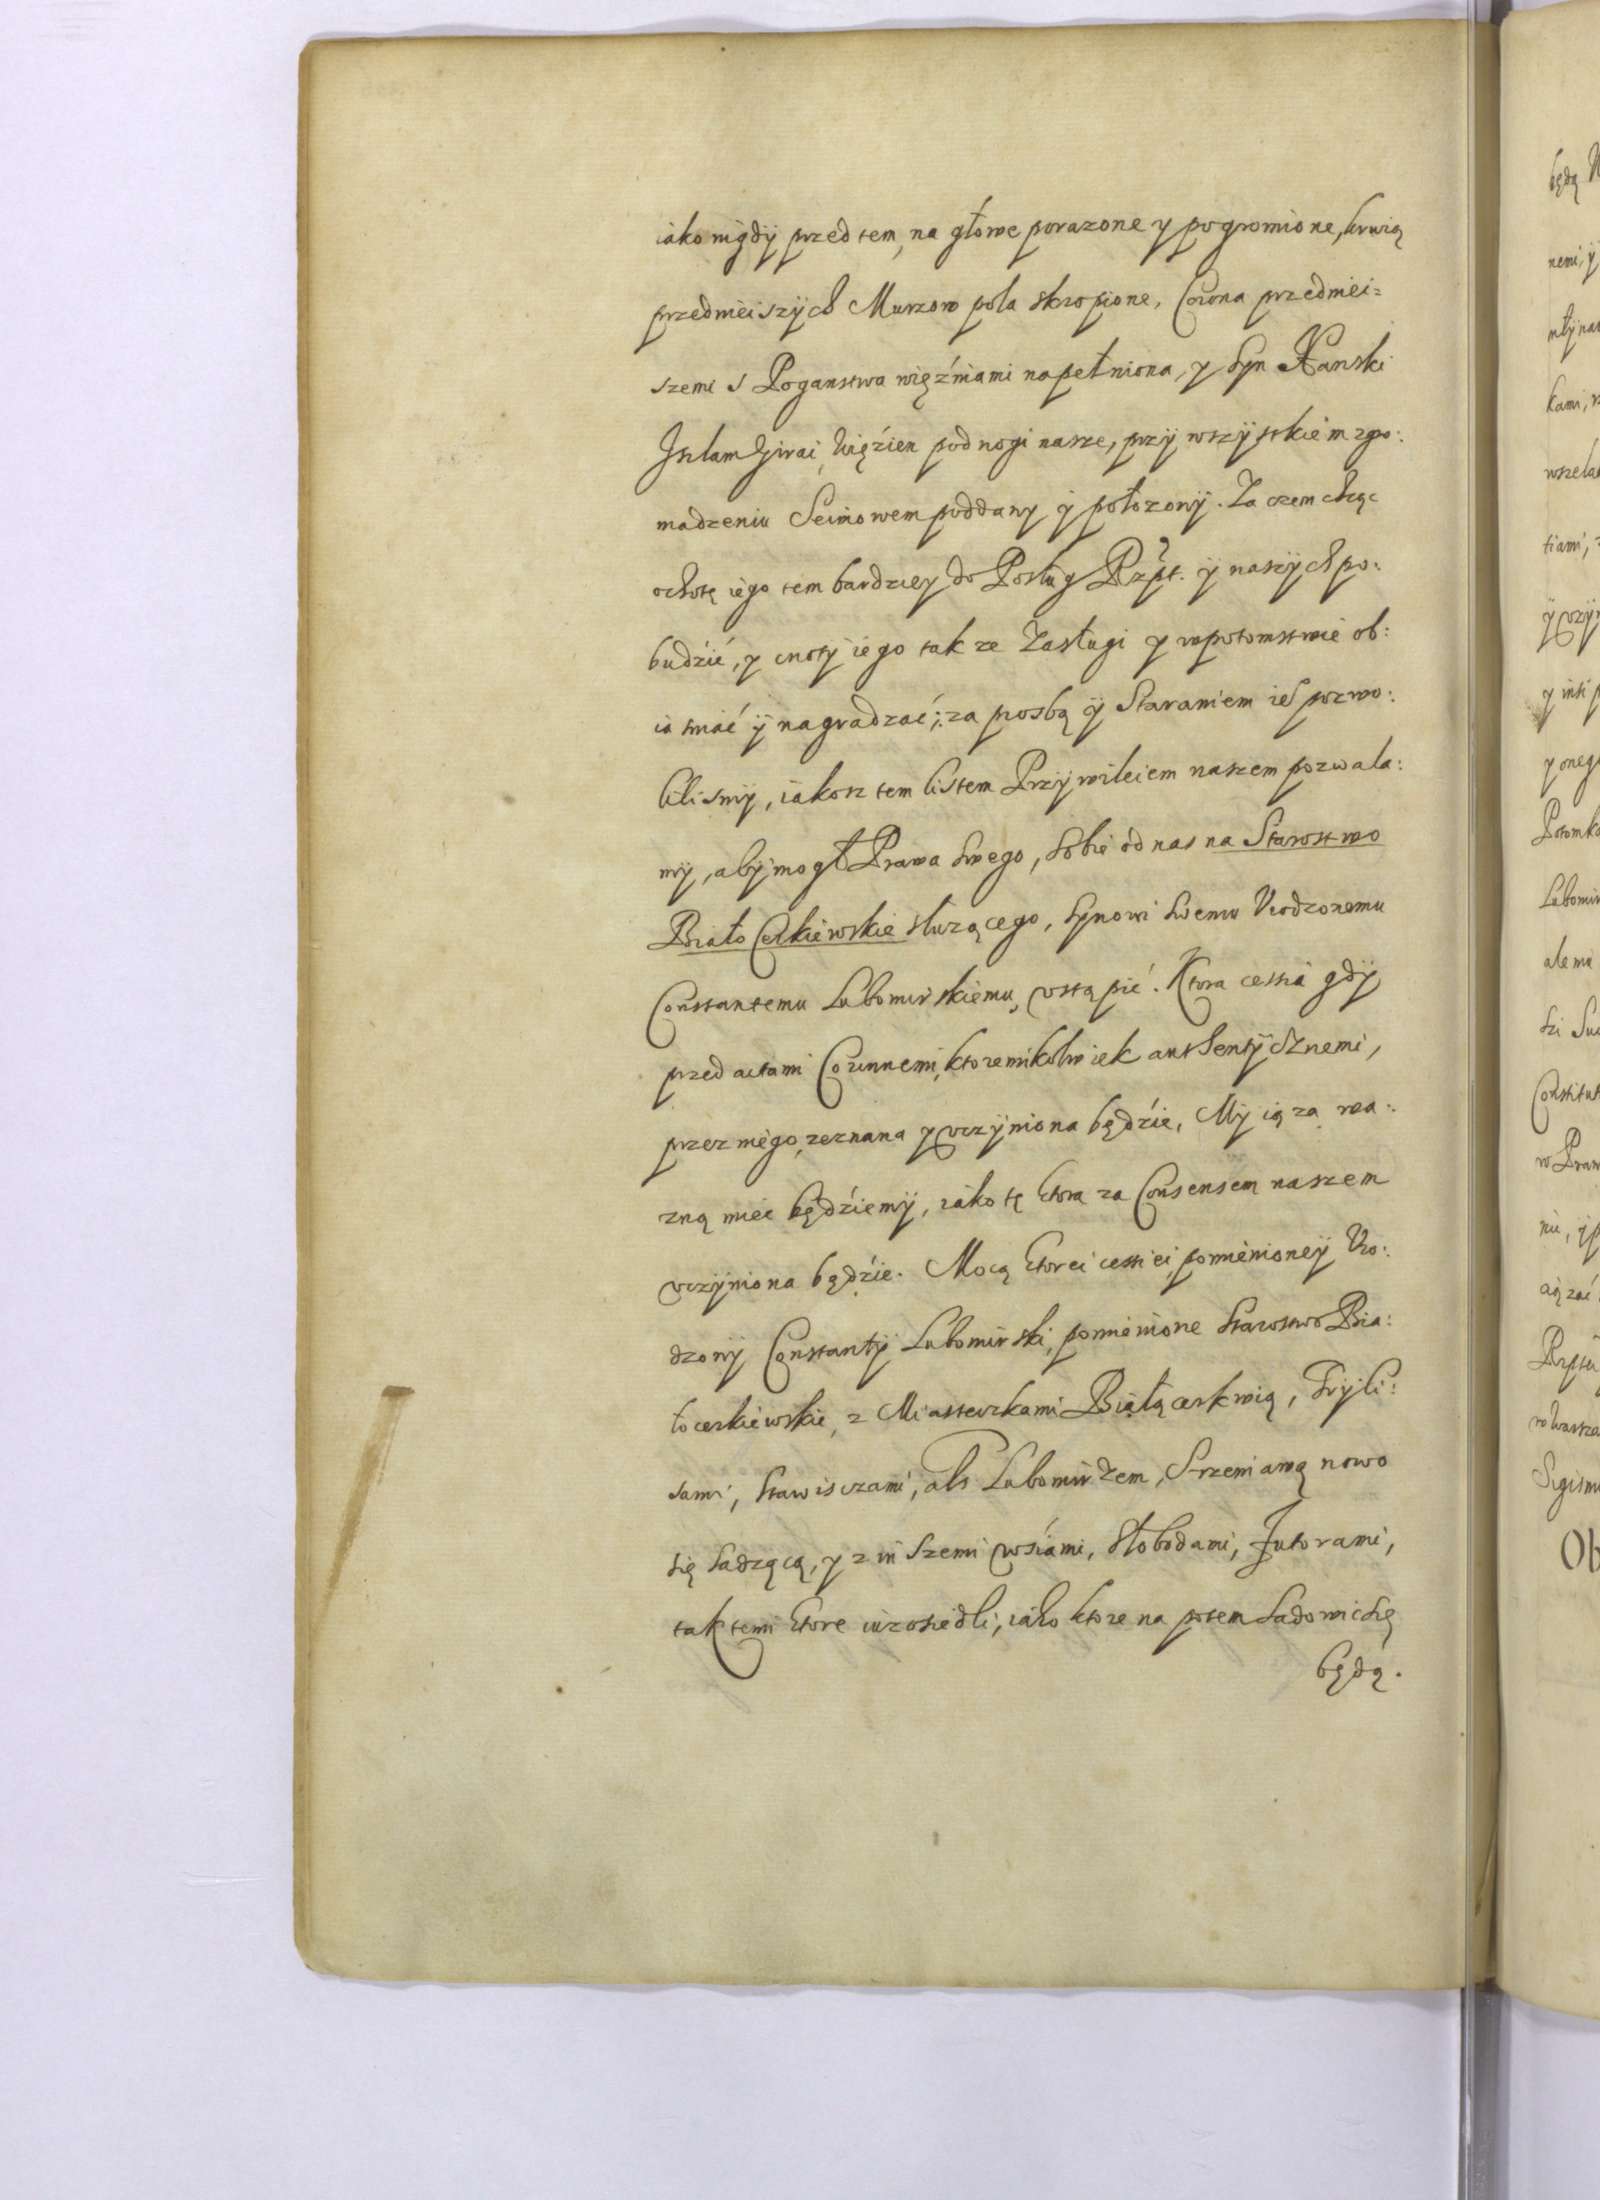 iako nigdÿ przed tem, na głowe porazone y pogromione, krwią
przednieiszÿch Murzow pola skropione, Corona przedniei=
szemi s Poganstwa więźniami napełniona, y Syn Xanski
Iszlam Girai, Więzien pod nogi nasze, przÿ wszÿstkiem zgro:
madzeniu Seimowem poddany ÿ położonÿ. Za czem chcąc
ochotę iego tem bardziey do Posług Rzpt. ÿ naszÿch po:
budźić, y cnotÿ iego tak ze Zasługi y w potomstwie ob:
iasniać ÿ nagradzać; za prosbą ÿ Staraniem ie° pozwo:
liliśmÿ, iakosz tem listem Przÿwileiem naszem pozwala:
mÿ, abÿ mogł Prawa Swego, Sobie od nas na Starostwo
Biało Cerkiewskie słuzącego, Synowi Swemu Urodzonemu
Constantemu Lubomirskiemu, ustąpić. Ktora cessia gdÿ
przed actami Coronnemi, ktoremikolwiek authentÿcznemi,
przez niego, zeznana y uczÿniona będźie, Mÿ ią za wa:
zną mieć będźiemÿ, iako tę ktora za Consensem naszem
uczÿniona będźie. Mocą ktorei cessiei, pomienioneÿ Uro:
dzonÿ Constantÿ Lubomirski, pomienione Starostwo Bia:
łocerkiewskie, z Miasteczkami Białącerkwią, Trÿli:
sami, Stawisczami, als Lubomirzem, Strzemiawą nowo
się Sadzącą, y z inszemi wśiami, Słobodami, Futorami,
tak temi ktore iuz osiedli, iako ktore na potem Sadowić Się
będą.
będą
nemi, ÿ
młÿna
kami,
wszela
tiami,
y onego
Potomko
Lubomir
ale ma
Constitut
w Praw
nie, ÿ p
w Warsza
Sigism
Ob